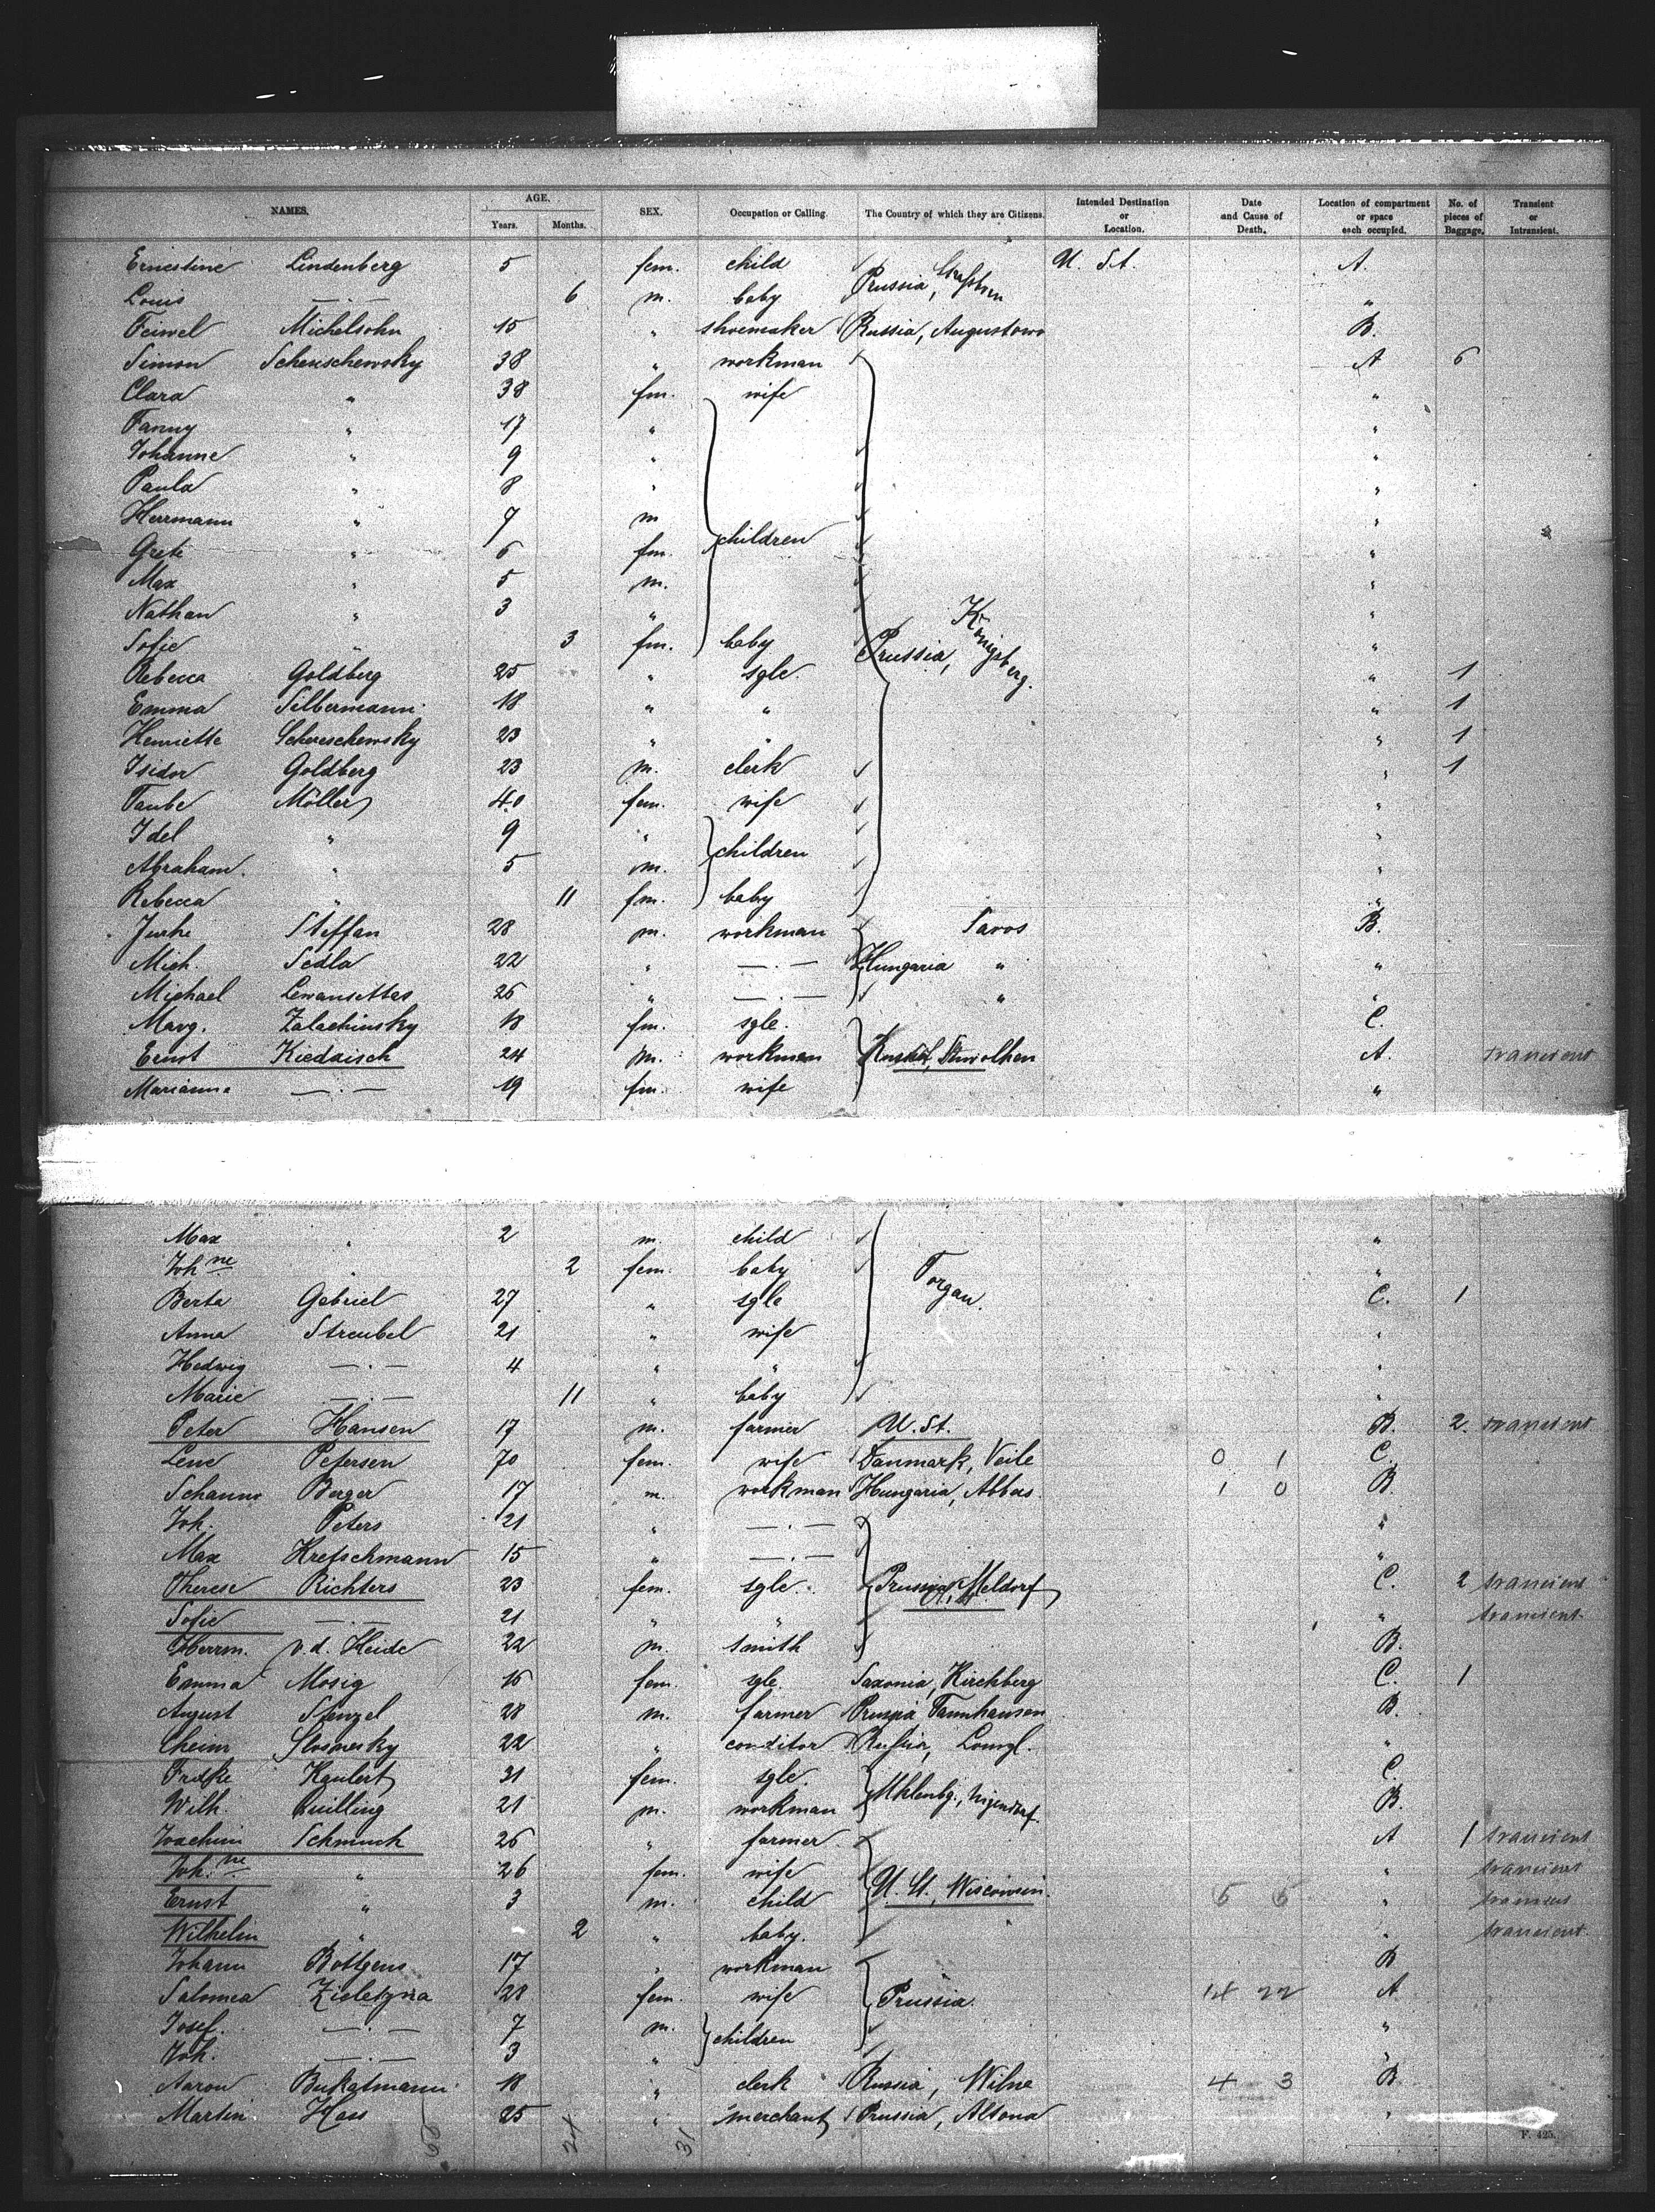 NAMES. AGE. Years. Months. SEX. Occupation or Calling The Country of which they are Citizens. Intended Destination or Location. Date and Cause of Death. Location of compartment or space each occupied. No. of pieces of Baggage. Transient or Intransient.
Ernestine Lindenberg 5 fem. child Prussia, U. St. A.
Louis —.— 6 m. baby "
Feiwel Michelsohn 15 " shoemaker Russia, Augustowo B.
Simon Schereschewsky 38 " workman A 6
Clara " 38 fm. wife "
Fanny " 17 " "
Johanne " 9 " "
Paula " 8 " "
Herrmann " 7 m "
Grete " 6 fm. children "
Max " 5 m. "
Nathan " 3 " "
Sofie " 3 fm. baby Prussia, Königsberg. "
Rebecca Goldberg 25 " sgle. " 1
Emma Silbermann 18 " " " 1
Henriette Schereschewsky 23 " " " 1
Isidor Goldberg 23 m. clerk " 1
Taube Möller 40 fem. wife "
Idel " 9 " "
Abraham. " 5 m. children "
Rebecca " 11 fm. baby "
Jurke Steffan 28 m. workman Saros B.
Mich. Sedla 22 " —.— Hungaria " "
Michael 26 " —.— " "
Marg. Zalachinsky 18 fm. sgle. C.
Ernst Kiedaisch 24 m. workman A. transient
Marianne —.— 19 fm. wife "
Max " 2 m. child "
Johne " 2 fem. baby Torgau. "
Berta Gabriel 27 " sgle C. 1
Anna Streubel 21 " wife "
Hedwig —.— 4 " " "
Marie —.— 11 " baby "
Peter Hansen 17 m. farmer U. St. B. 2. transient
Lene Petersen 70 fem. wife Danmark, Veile 0 1 C.
Schanno Berger 17 m. workman Hungaria, Abbas. 1 0 B.
Joh. Peters 21 " —.— "
Max Kretschmann 15 " —.— "
Therese Richters 23 fem. sgle. Prussia, Meldorf C. 2 transient
Sofie —.— 21 " " " transient
Herrm. v. d. Heide 22 m. smith B.
Emma Mosig 16 fem. sgle Saxonia, Kirchberg C. 1
August Stenzel 28 m. farmer Prussia Tannhausen B.
Cheim Slosnersky 22 " conditor Russia, "
Frdke Kaulert 31 fem. sgle. C.
Wilh. Quilling 21 m. workman B.
Joachim Schmuck 26 " farmer A 1 transient
Joh.ne " 26 fem. wife " transient
Ernst " 3 m. child U. St., Wisconsin. 5 6 " transient
Wilhelm " 2 " baby. " transient
Johann Bottgens 17 " workman B
Salomea 28 fem. wife Prussia. 14 22 A
Josef. —.— 7 m. "
Joh. —.— 3 " children "
Aaron Bukatmann 18 " clerk Russia, Wilna 4 3 B
Martin Hass 25 " merchant Prussia, Altona "
24 31
F. 425.